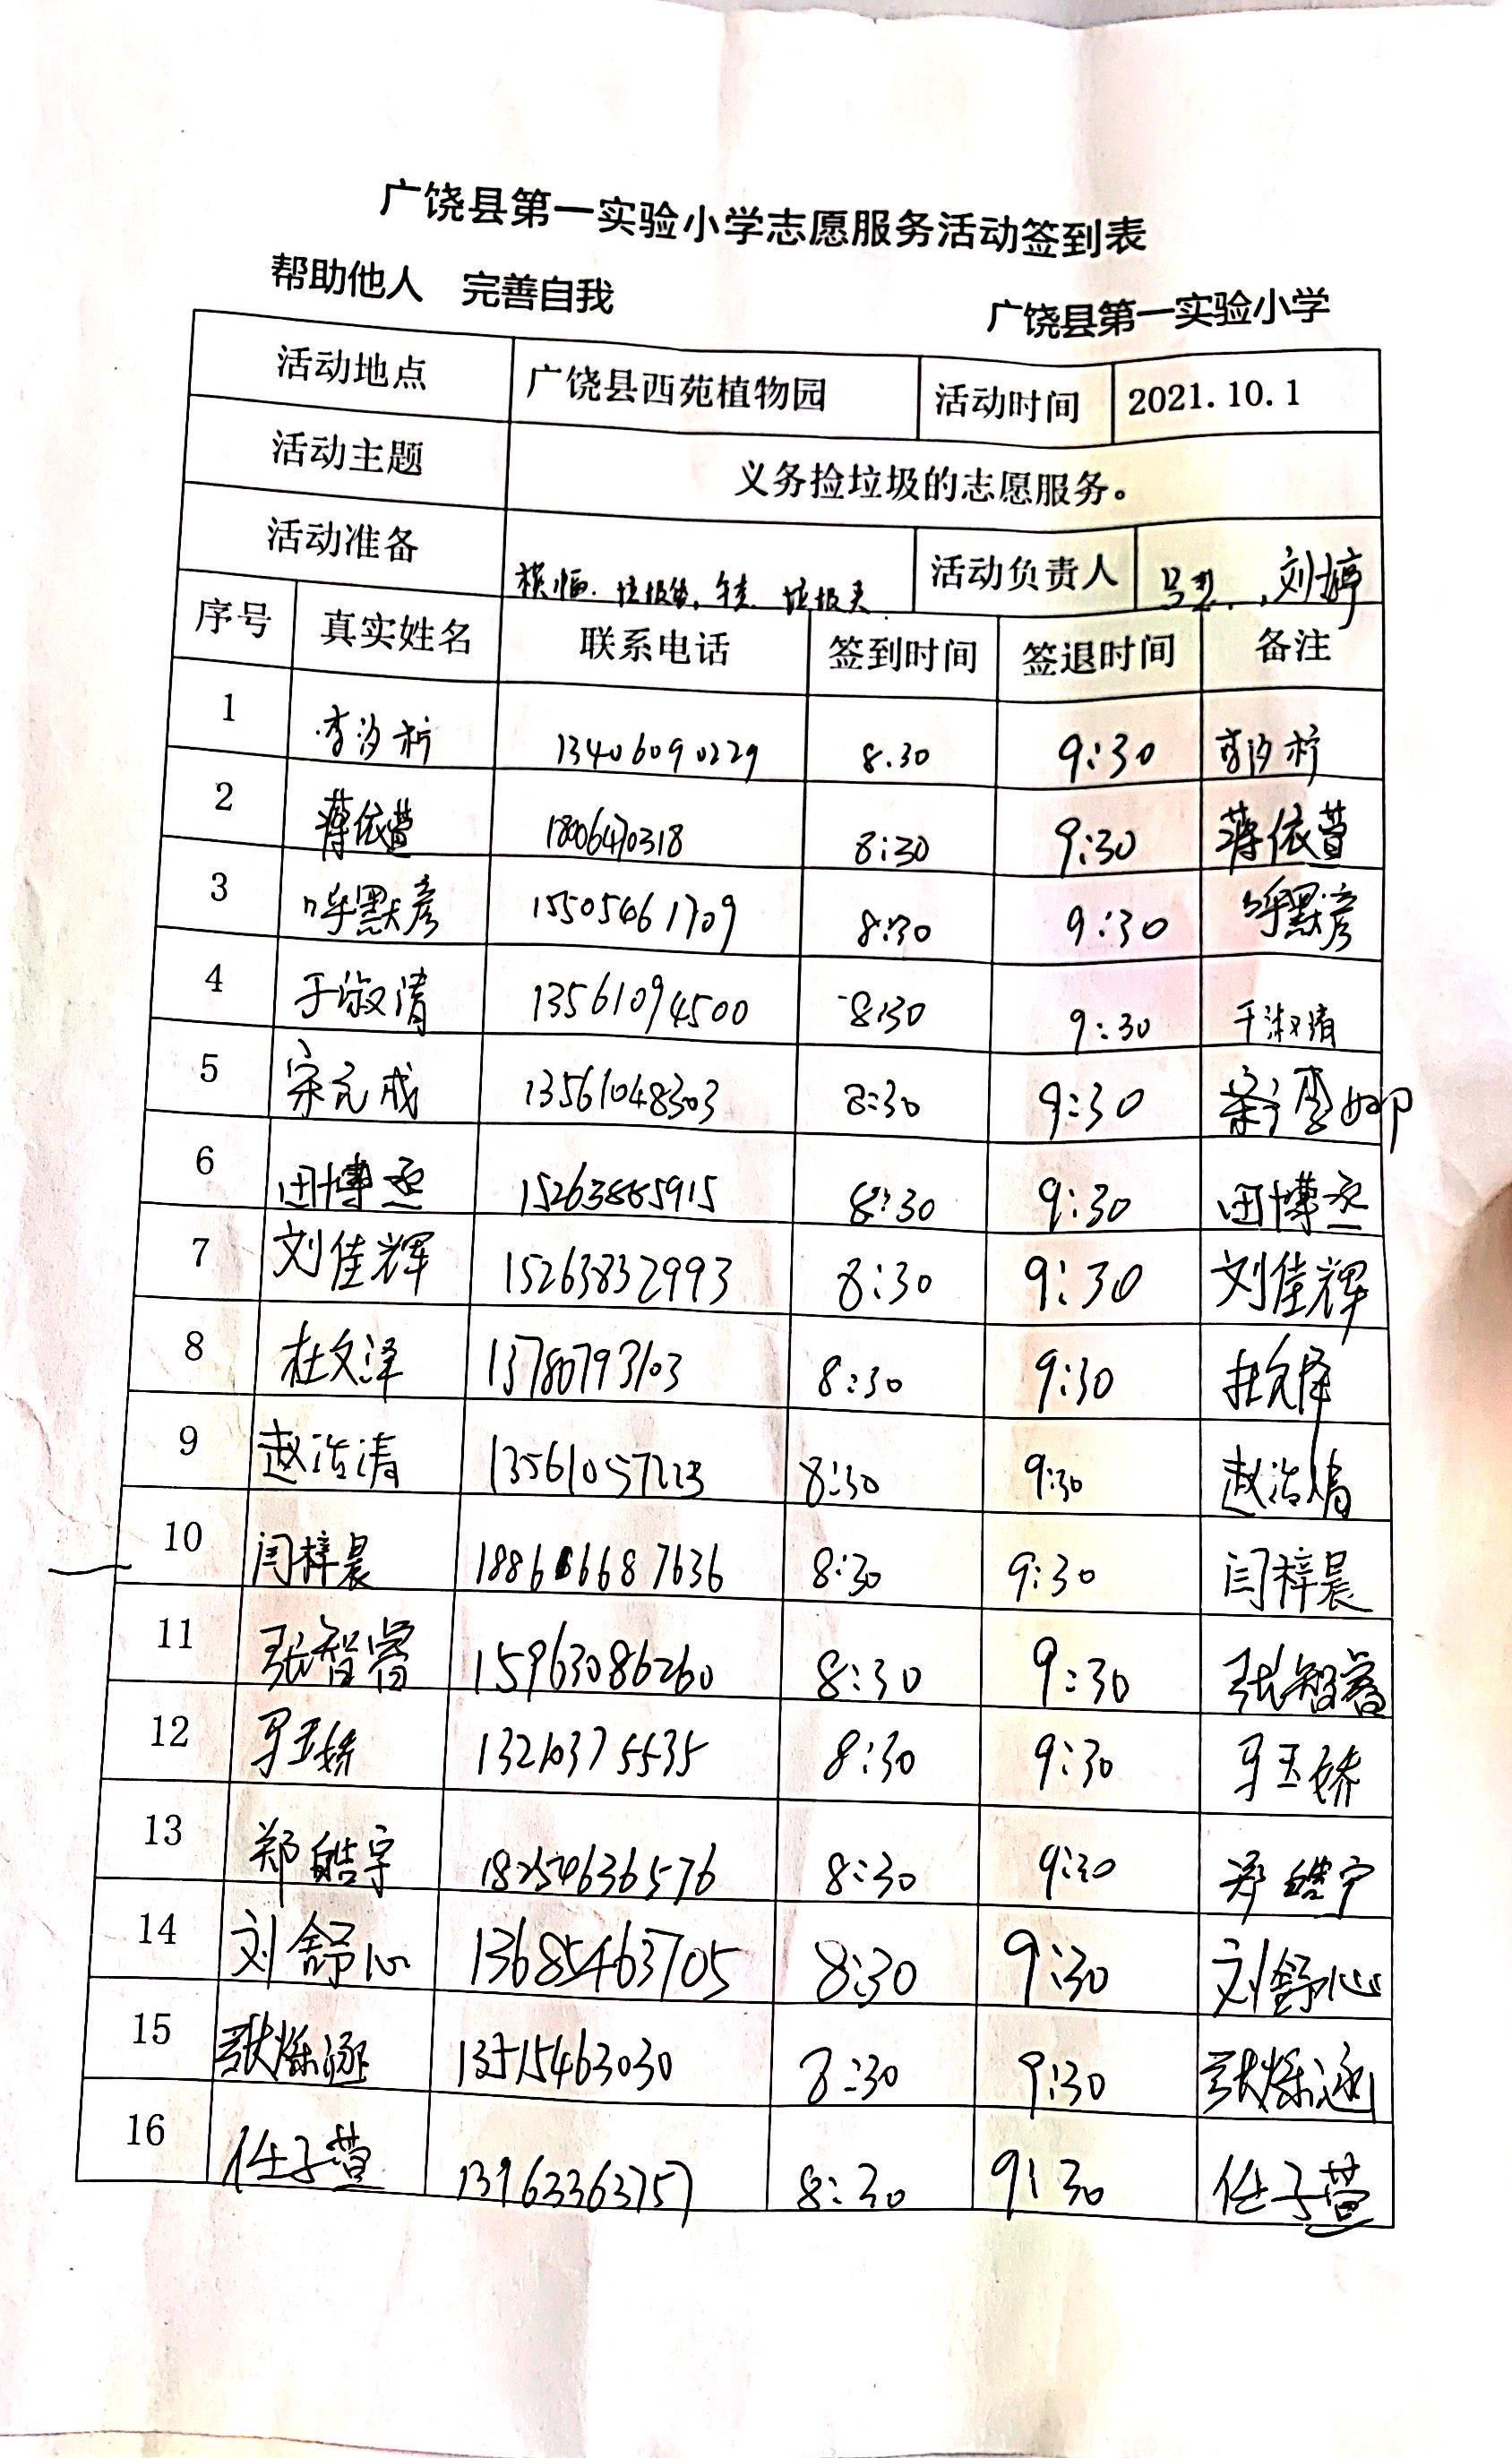 广饶县第一实验小学志愿服务活动签到表
帮助他人 完善自我 广饶县第一实验小学
活动地点 广饶县西苑植物园 活动时间 2021.10.1
活动主题 义务捡垃圾的志愿服务。
活动准备 横幅、垃圾袋、 垃圾夹 活动负责人 刘婷
序号 真实姓名 联系电话 签到时间 签退时间 备注
1 李汐析 13406090229 8.30 9:30 李汐析
2 蒋依萱 18006470318 8:30 9:30 蒋依萱
3 呼默彦 15505461709 8:30 9:30 呼默彦
4 于淑清 13561094500 8:30 9:30 于淑清
5 宋元成 13561048303 8:30 9:30
6 田博丞 15263885915 8:30 9:30 田博丞
7 刘佳辉 15263832993 8:30 9:30 刘佳辉
8 杜文泽 13780793103 8:30 9:30 杜文泽
9 赵浩清 13561057223 8:30 9:30 赵浩清
10 闫梓晨 8:30 9:30 闫梓晨
11 张智睿 15963086260 8:30 9:30 张智睿
12 马玉娇 13210375535 8:30 9:30 马玉娇
13 郑皓宇 18254636576 8:30 9:30 郑皓宇
14 刘舒心 13685463705 8:30 9:30 刘舒心
15 张烁涵 13515463030 8:30 9:30 张烁涵
16 任子萱 13963363757 8:30 9:30 任子萱